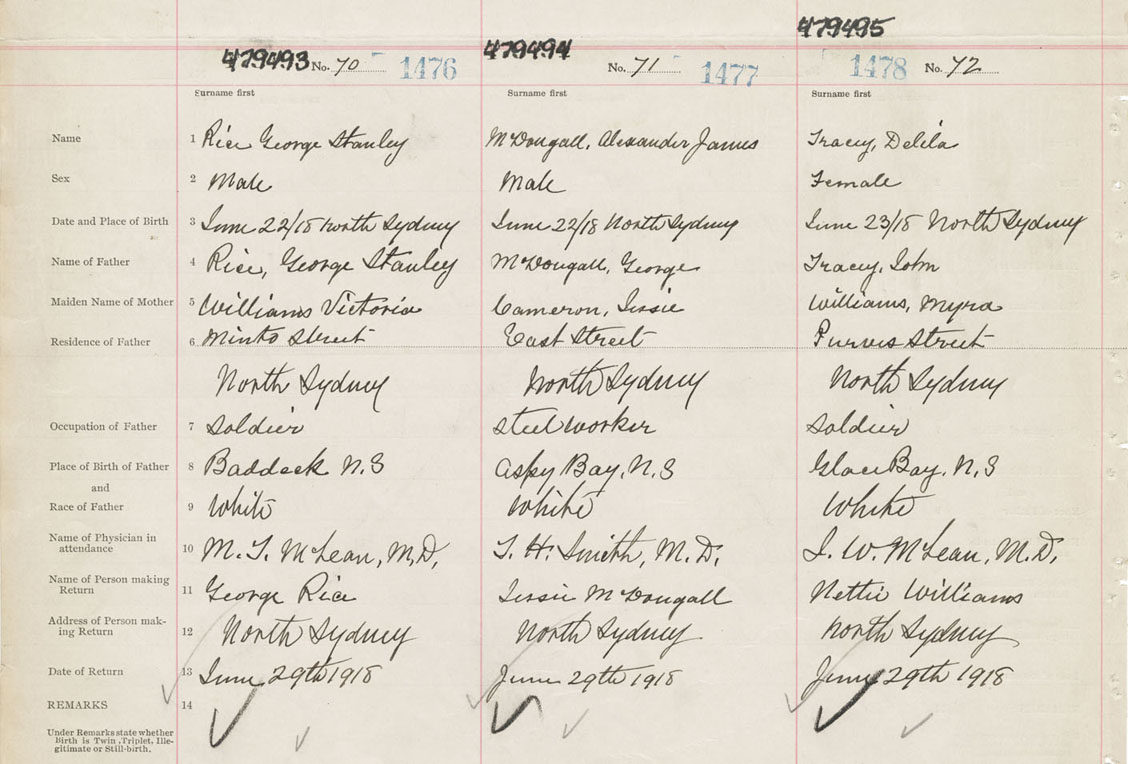 479495
479493 No. 70 1476 479494 No. 71 1477 1478 No. 72
Surname first Surname first Surname first
Name 1 Rice George Stanley McDougall, Alexander James Tracey, Delila
Sex 2 Male Male Female
Date and Place of Birth 3 June 22/18 North Sydney June 22/18 North Sydney June 23/18 North Sydney
Name of Father 4 Rice, George Stanley McDougall, George Tracey, John
Maiden Name of Mother 5 Williams Victoria Cameron, Jessie Williams, Myra
Residence of Father 6 Minto Street East Street Purves Street
North Sydney North Sydney North Sydney
Occupation of Father 7 Soldier Steel worker Soldier
Place of Birth of Father 8 Baddeck N.S Aspy Bay, N.S Glace Bay, N,S
and
Race of Father 9 White White White
Name of Physician in
attendance 10 M. T. McLean, M,D, T. H. Smith, M.D. J. W. McLean, M.D.
Name of Person making
Return 11 George Rice Jessie McDougall Nettie Williams
Address of Person mak-
ing Return 12 North Sydney North Sydney North Sydney
Date of Return 13 June 29th 1918 June 29th 1918 June 29th 1918
REMARKS 14
Under Remarks state whether
Birth is Twin, Triplet, Ille-
gitimate or Still-birth.